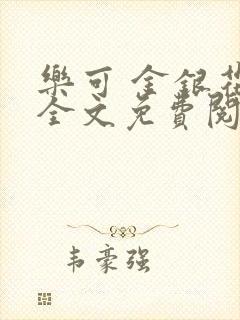 樂可 金銀花
全文免費閱
韦豪强